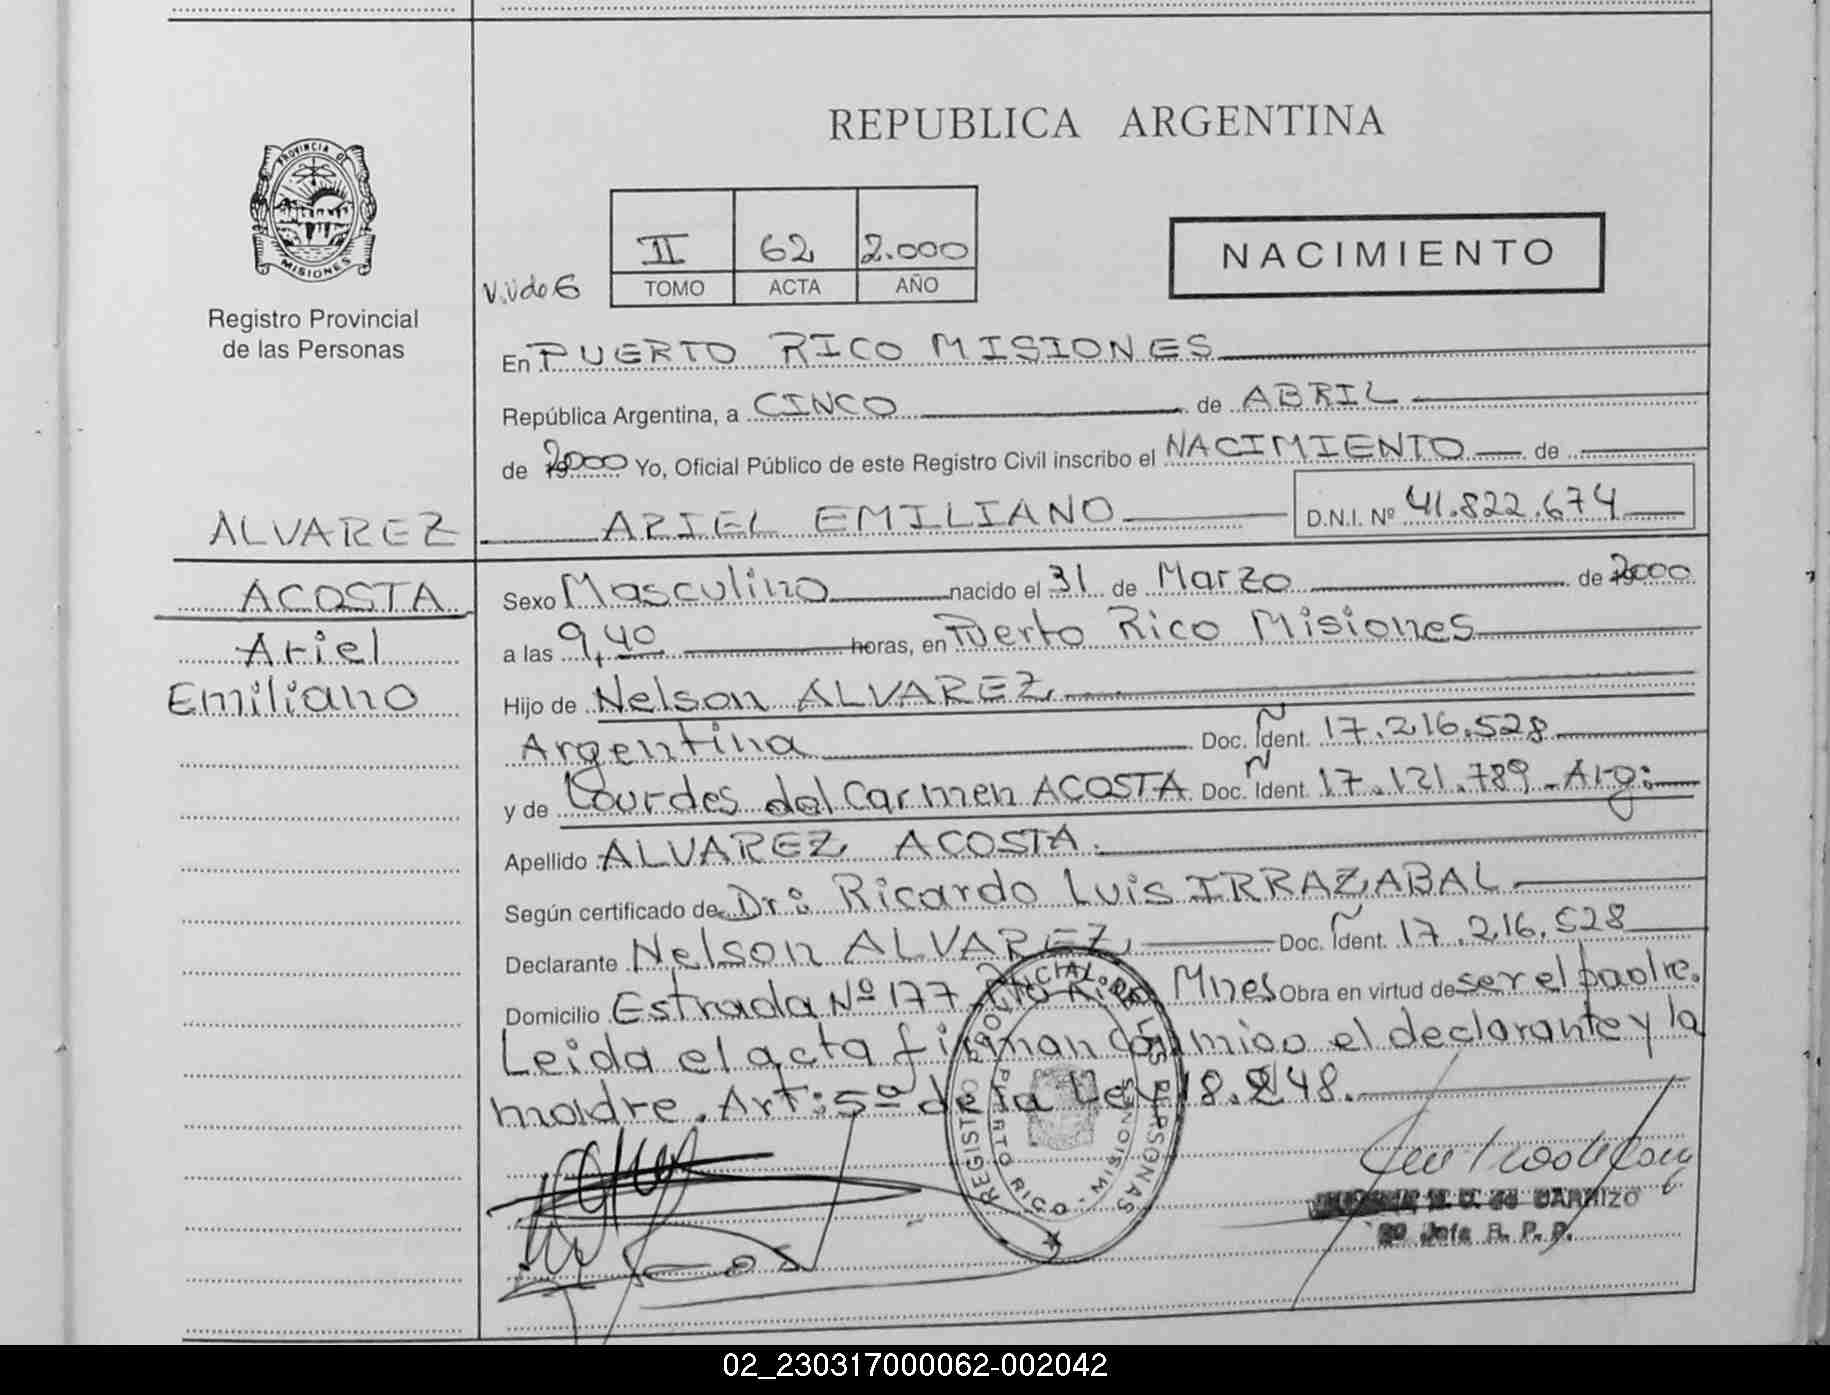 REPUBLICA ARGENTINA
PROVINCIA DE
MISIONES
Registro Provincial
de las Personas
II 62 2.000
TOMO ACTA AÑO
NACIMIENTO
En PUERTO RICO MISIONES
República Argentina, a CINCO de ABRIL
de 2000 Yo, Oficial Público de este Registro Civil inscribo el NACIMIENTO de
ALVAREZ ARIEL EMILIANO D.N.I. Nº 41.822.674
ACOSTA
Ariel
Emiliano
Sexo Masculino nacido el 31 de Marzo de 2000
a las 9,40 horas, en Puerto Rico Misiones
Hijo de Nelson ALVAREZ
Argentina Doc. Ident. 17.216.528
y de Lourdes del Carmen ACOSTA Doc. Ident. 17.121.789 - Arg:
Apellido ALVAREZ ACOSTA.
Según certificado de Dr: Ricardo Luis IRRAZABAL
Declarante Nelson ALVAREZ Doc. Ident. 17.216.528
Domicilio Estrada Nº 177 Pto Rico Mnes Obra en virtud de ser el padre.
Leida el acta firman conmigo el declarante y la
madre. Art: 5º de la Ley 18.248.
REGISTRO PROVINCIAL DE LAS PERSONAS
PUERTO RICO - MISIONES
de CARRIZO
Jefe R. P. P.
02_230317000062-002042